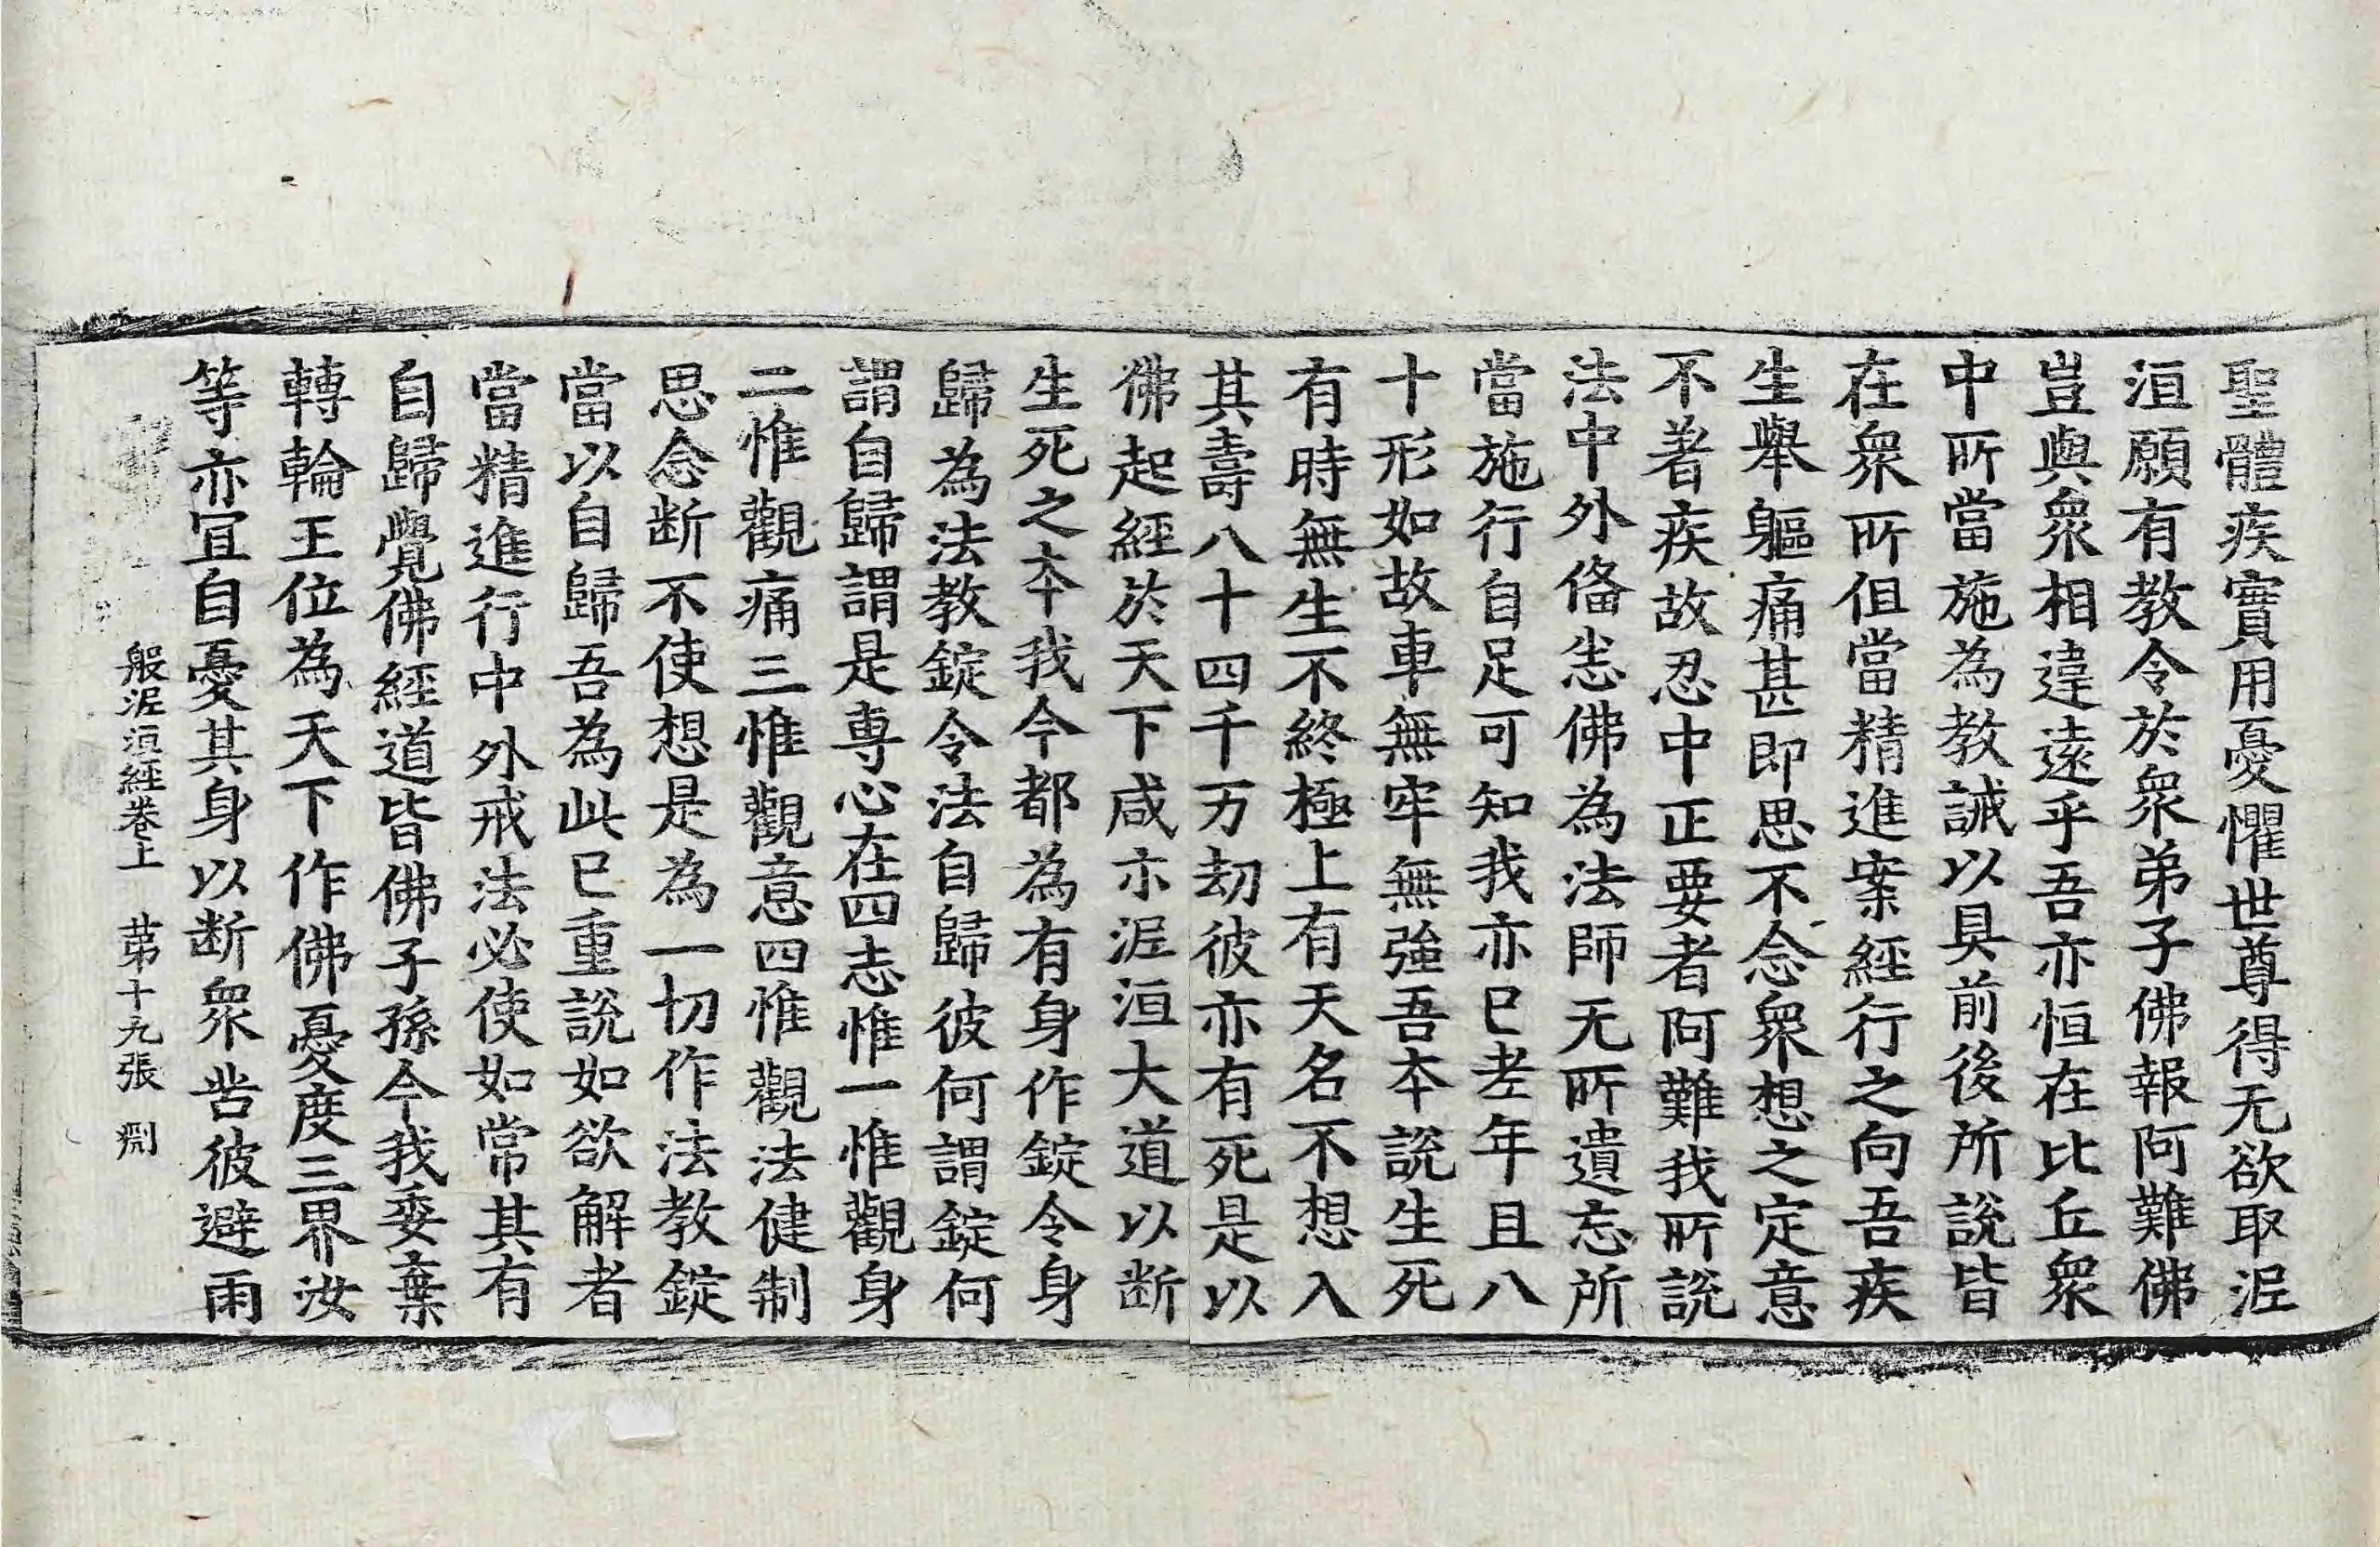 聖體疾實用憂懼世尊得无欲取泥
洹願有教令於衆弟子佛報阿難佛
豈與衆相違遠乎吾亦恒在比丘衆
中所當施為教誡以具前後所說皆
在衆所但當精進案經行之向吾疾
生舉軀痛甚即思不念衆想之定意
不著疾故忍中正要者阿難我所說
法中外俻恙佛為法師无所遺忘所
當施行自足可知我亦已老年且八
十形如故車無牢無強吾本說生死
有時無生不終極上有天名不想入
其壽八十四千万劫彼亦有死是以
佛起經於天下咸示泥洹大道以断
生死之本我今都為有身作錠令身
歸為法教錠令法自歸彼何謂錠何
謂自歸謂是専心在四志惟一惟觀身
二惟觀痛三惟觀意四惟觀法健制
思念断不使想是為一切作法教錠
當以自歸吾為此已重說如欲解者
當精進行中外戒法必使如常其有
自歸覺佛經道皆佛子孫今我委棄
轉輪王位為天下作佛憂度三界汝
等亦冝自憂其身以断衆㫮彼避雨
般泥洹經卷上　苐十九張